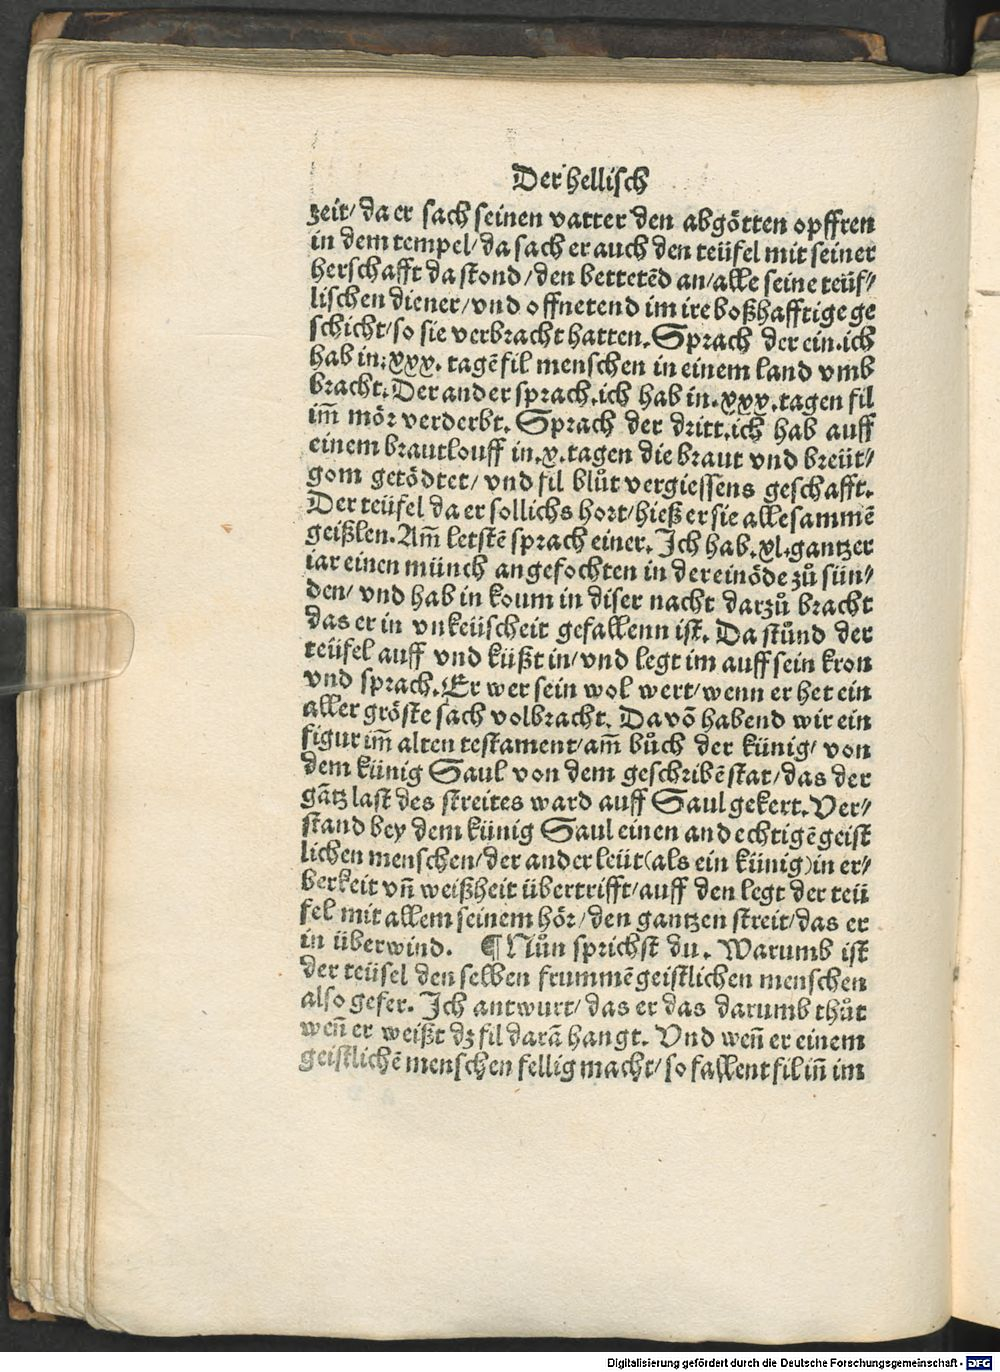 Der hellisch
zeit/ da er sach seinen vatter den abgötten opffren
in dem tempel/ da sach er auch den teüfel mit seiner
herschafft da stond/ den bettetẽd an/ alle seine teüf⸗
lischen diener/ vnd offnetend im ire boßhafftige ge
schicht/ so sie verbracht hatten. Sprach der ein. ich
hab in. xxx. tagẽ fil menschen in einem land vmb
bracht. Der ander sprach. ich hab in. xxx. tagen fil
im̃ mör verderbt. Sprach der dritt. ich hab auff
einem brautlouff in. x. tagen die braut vnd breüt⸗
gom getödtet/ vnd fil blůt vergiessens geschafft.
Der teüfel da er sollichs hort/ hieß er sie alle sammẽ
geißlen. Am̃ letstẽ sprach einer. Ich hab. xl. gantzer
iar einen münch angefochten in der einöde zů sün⸗
den/ vnd hab in koum in diser nacht darzů bracht
das er in vnkeüscheit gefallenn ist. Da stůnd der
teüfel auff vnd küßt in/ vnd legt im auff sein kron
vnd sprach. Er wer sein wol wert/ wenn er het ein
aller gröste sach volbracht. Da võ habend wir ein
figur im̃ alten testament/ am̃ bůch der künig/ von
dem künig Saul von dem geschribẽ stat/ das der
gãtz last des streites ward auff Saul gekert. Ver⸗
stand bey dem künig Saul einen andechtigẽ geist
lichen menschen/ der ander leüt (als ein künig) in er⸗
berkeit vñ weißheit übertrifft/ auff den legt der teü
fel mit allem seinem hör/ den gantzen streit/ das er
in überwind. ¶ Nůn sprichst du. Warumb ist
der teüsel den selben frummẽ geistlichen menschen
also gefer. Ich antwurt/ das er das darumb thůt
weñ er weißt dz fil darã hangt. Vnd weñ er einem
geistlichẽ menschen fellig macht/ so fallent fil iñ im
Digitalisierung gefördert durch die Deutsche Forschungsgemeinschaft - DFG